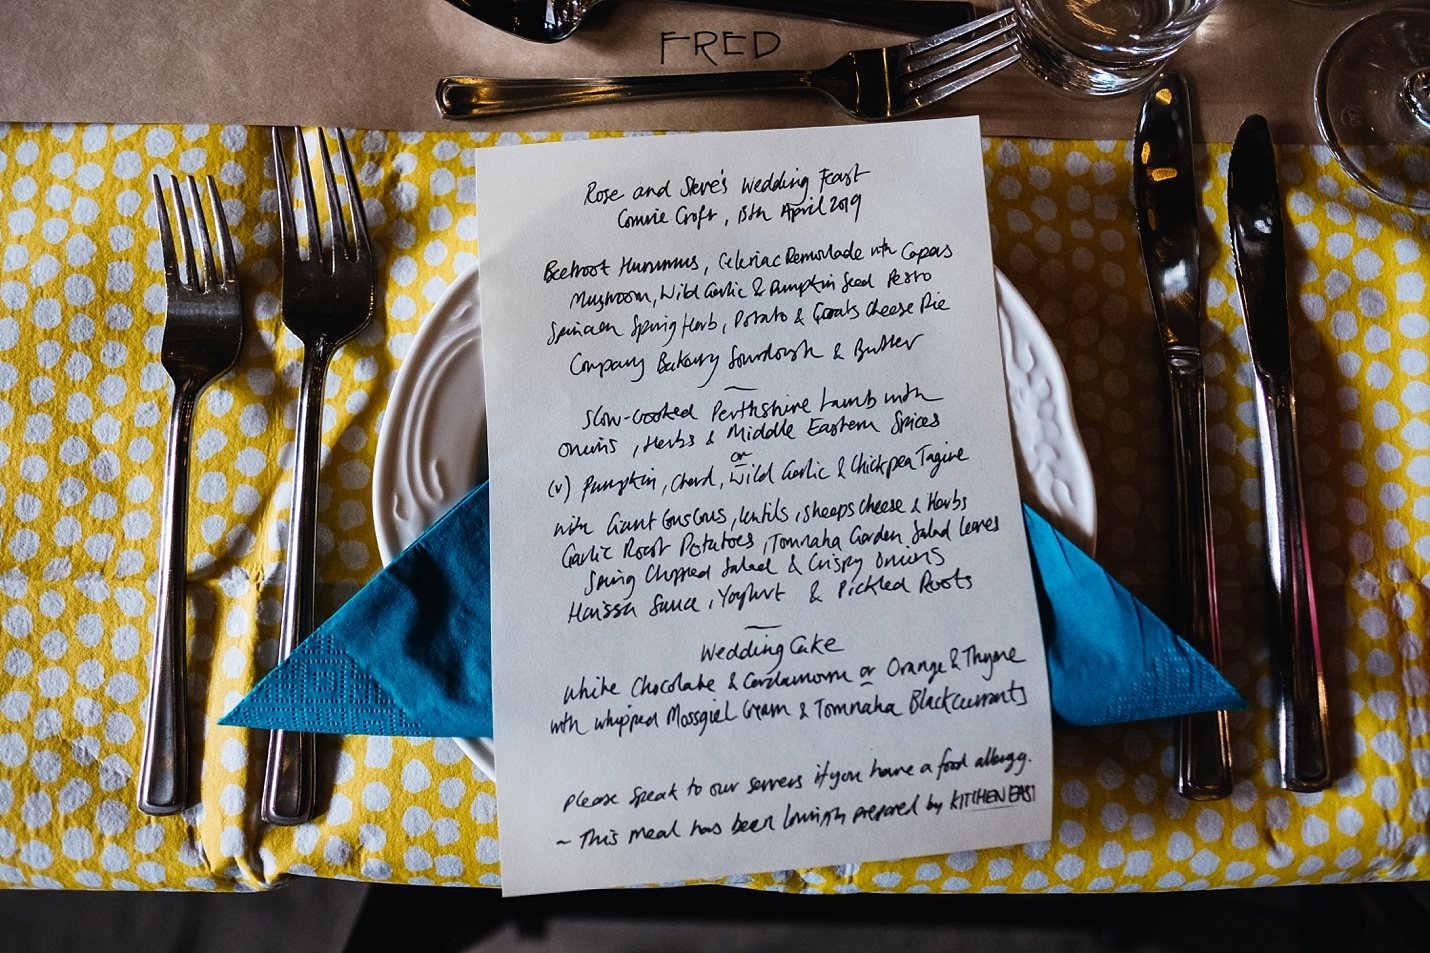 FRED
Rose and Steve's Wedding Feast
Comrie Croft, 13th April 2019
Beetroot Hummus, Celeriac Remoulade with Capers
Mushroom, Wild Garlic & Pumpkin Seed Pesto
Spinach Spring Herb, Potato & Goats Cheese Pie
Company Bakery Sourdough & Butter
Slow-Cooked Perthshire Lamb with
Onions, Herbs & Middle Eastern Spices
or
(v) Pumpkin, Chard, Wild Garlic & Chickpea Tagine
with Giant Cous Cous, lentils, sheeps cheese & Herbs
Garlic Roast Potatoes, Tomnaha Garden Salad leaves
Spring Chopped Salad & Crispy Onions
Harissa Sauce, Yoghurt & Pickled Roots
Wedding Cake
White Chocolate & Cardamom or Orange & Thyme
with whipped Mossgiel Cream & Tomnaha Blackcurrants
Please speak to our servers if you have a food allergy.
~ This meal has been lovingly prepared by KITCHEN EAST